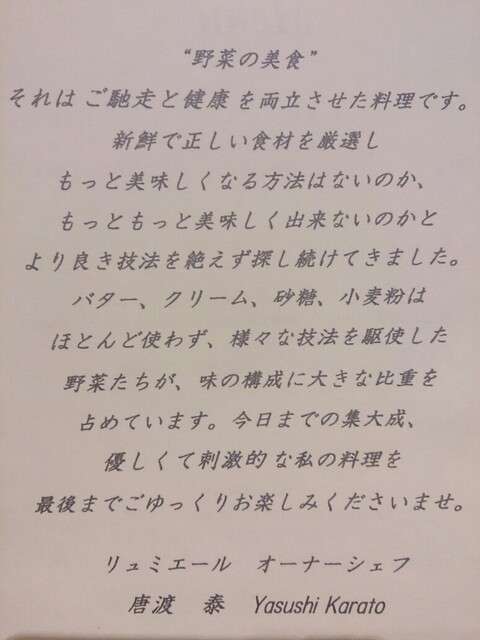 “野菜の美食”
それは ご馳走と健康 を両立させた料理です。
新鮮で正しい食材を厳選し
もっと美味しくなる方法はないのか、
もっともっと美味しく出来ないのかと
より良き技法を絶えず探し続けてきました。
バター、クリーム、砂糖、小麦粉は
ほとんど使わず、様々な技法を駆使した
野菜たちが、味の構成に大きな比重を
占めています。今日までの集大成、
優しくて刺激的 な私の料理を
最後までごゆっくりお楽しみくださいませ。
リュミエール オーナーシェフ
唐渡 泰 Yasushi Karato